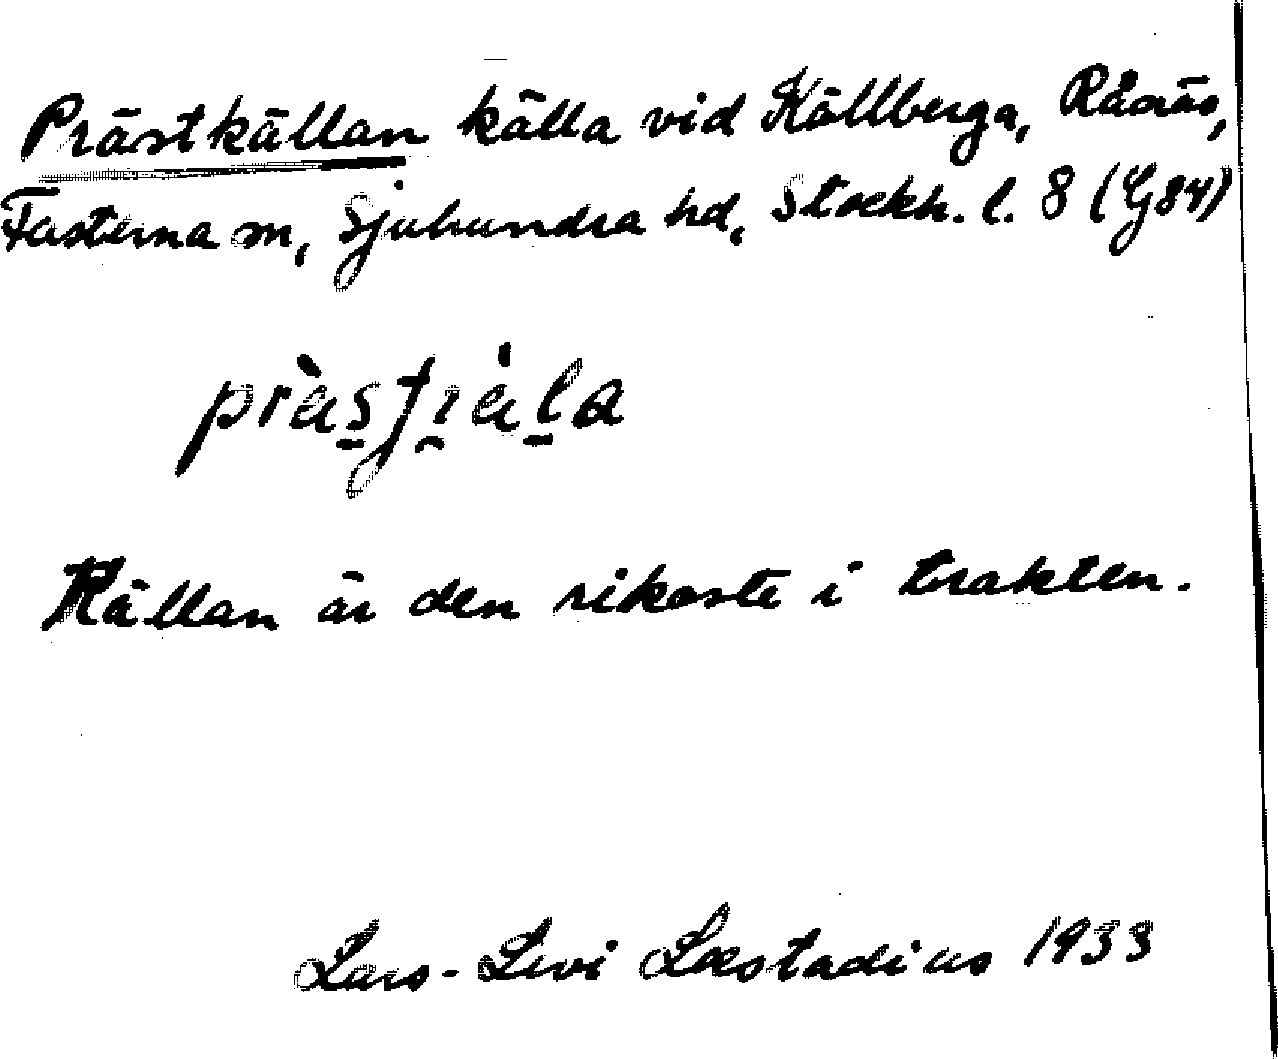 Prästkällan källa vid Källberga, Rånäs,
Fasterna sn, Sjuhundra hd, Stockh. l. 8 (G84)
Källan är den rikaste i trakten.
Lars-Levi Læstadius 1933